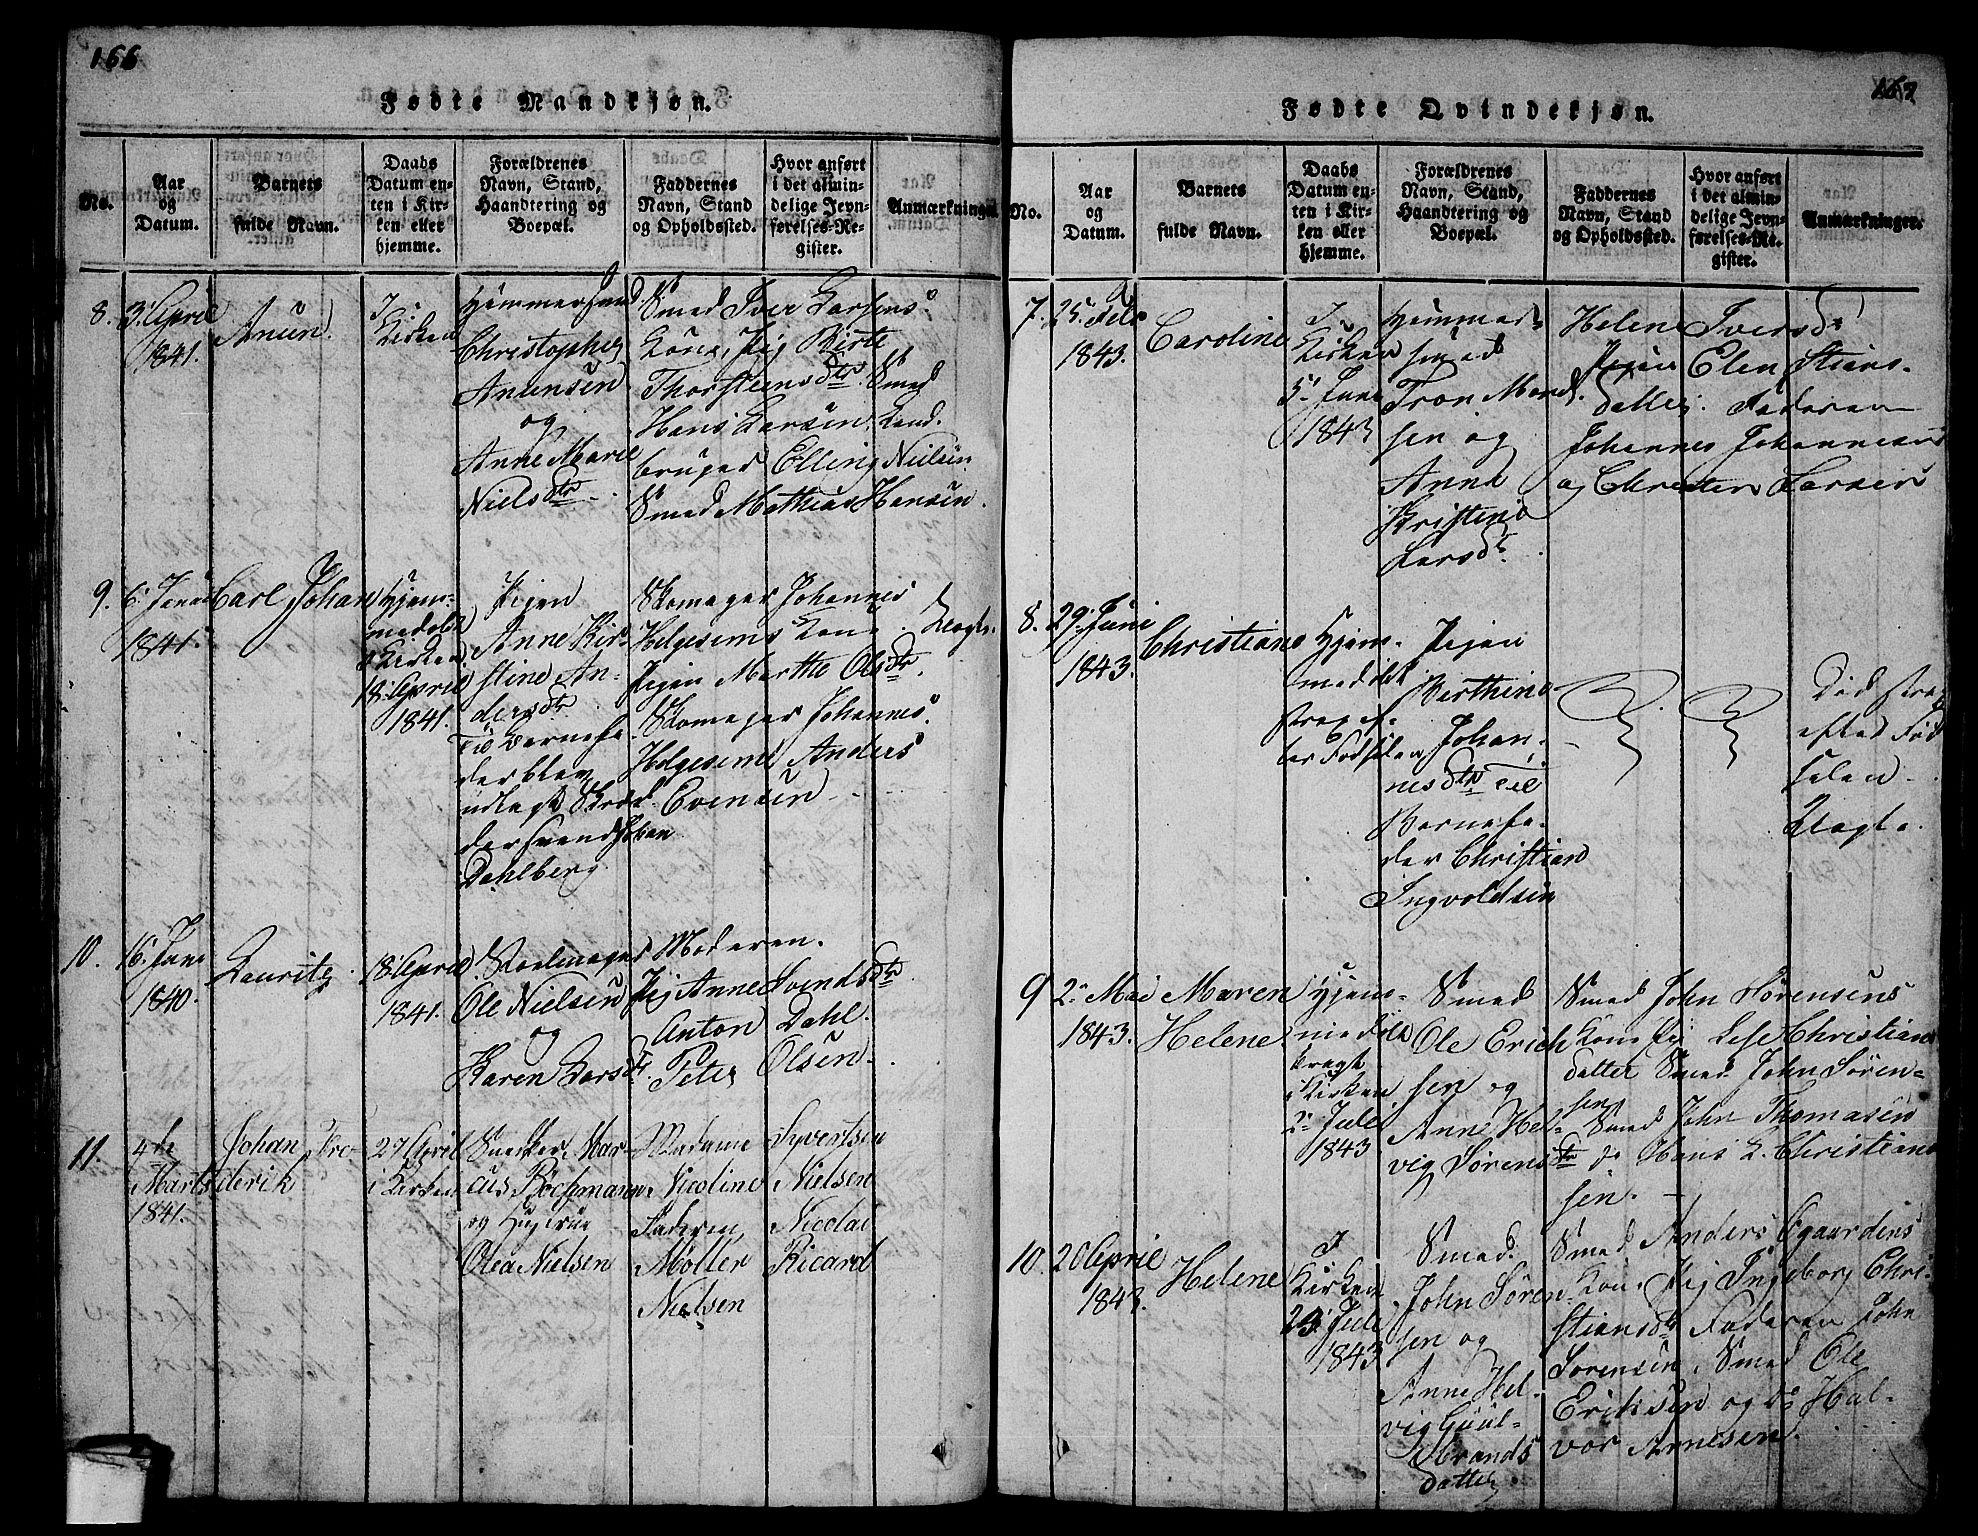 166
Fødte Mandkjøn.
No.
Aar
og
Datum.
Barnets
fulde Navn.
Daabs
Datum en-
ten i Kir-
ken eller
hjemme.
Forældrenes
Navn, Stand,
Haandtering og
Boepæl.
Faddernes
Navn, Stand
og Opholdssted.
Hvor anført
i det almin-
delige Jevn-
førelses-Re-
gister.
Anmærkninger.
8.
3' April
1841.
Anun.
I
Kirken
Hammersmed
Christopher
Anunsen
og
Anne Marie
Nielsdtr.
Smed Iver Larsens
Kone, Pig Birte
Thorsteensdtr. Smed
Hans Larsen, Land-
bruger Elling Nielsen
Smed Mathias Hansen.
9.
6' Janu
1841.
Carl Johan
Hjem-
medøbt
i Kirken
18' April
1841.
Pigen
Anne Kir-
stine An-
dersdtr.
Til Barnefa-
der blev
udlagt Skræd-
der Svend Johan
Dahlberg.
Skomager Johannes
Helgesens Kone.
Pigen Marthe Olsdtr.
Skomager Johannes
Helgesen Anders
Evensen
Uægte.
10.
16' Juni
1840.
Lauritz.
18' April
1841.
Ole Nielsen
og
Karen Larsdtr.
Moderen.
Pig Anne Svendsdtr
Anton Dahl.
Peter Olsen.
11.
4de
Marts
1841.
Johan Fre-
derik
27 April
i Kirken
Snedker Mar-
cus Bochmann
og Hustrue
Olea Nielsen
Madame Syvertsen
Nicoline Nielsen
Faderen, Nicolai
Møller Ricard
Nielsen
167
Fødte Qvindekjøn.
No.
Aar
og
Datum.
Barnets
fulde Navn.
Daabs
Datum en-
ten i Kir-
ken eller
hjemme.
Forældrenes
Navn, Stand,
Haandtering og
Boepæl.
Faddernes
Navn, Stand
og Opholdssted.
Hvor anført
i det almin-
delige Jevn-
førelses-Re-
gister.
Anmærkninger.
7.
25. Feb
1843.
Caroline
I
Kirken
5' Juni
1843
Hammer-
smed
Tron Mond-
sen og
Anne
Kristine
Larsdtr.
Helene Iversdtr
Pigen Elen Stians-
datter. Faderen
Johannes Johannesen
og Christen Larsen
8.
29. Juni
1843.
Christiane
Hjem-
medøbt
strax ef-
ter Fødselen
Pigen
Berthine
Johan-
nesdtr Til
Barnefa-
der Christian
Ingvoldsen
Død strax
efter Fød-
selen.
Uægte.
9
2' Mai
1843.
Maren
Helene
Hjem-
medøbt
bragt
i Kirken
2' Juli
1843
Smed
Ole Erich-
sen og
Anne Hel-
vig Sørensdtr
Smed John Sørensens
Kone Pig Lese Christians
datter Smed John Søren-
sen Smed John Thomasen
do Hans L. Christian-
sen.
10.
20 April
1843.
Helene
I
Kirken
23' Juli
1843
Smed
John Søren-
sen og
Anne Hel-
vig Guul-
brands
datter
Smed Anders Ogaardens
Kone, Pig Ingeborg Chri-
stiansdtr Faderen John
Sørensen, Smed Ole
Ericksen og do Hal-
vor Arnesen.